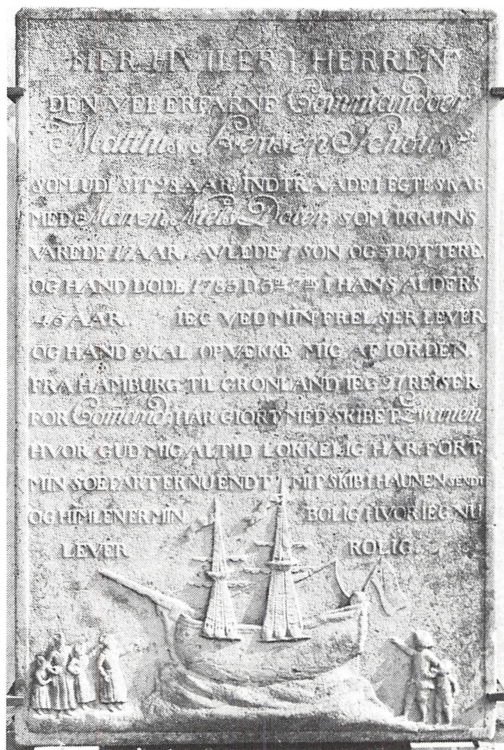 HER HVILER I HERREN
DEN VELERFARNE Commandoer
Matthis Jensen Schouw
SOM UDI SIT 28 AAR. INDTRAADE I EGTESKAB
MED Maren Niels Doter, SOM IKKUNS
VAREDE 17 AAR. AVLEDE 1 SON OG 3 DOTTERE.
OG HAND DODE 1785 I HANS ALDERS
45 AAR. IEG VED MIN FRELSER LEVER
OG HAND SKAL OPVÆKKE MIG AF IORDEN.
FRA HAMBURG TIL GRONLAND IEG 21 REISER.
FOR Comand: HAR GIORT MED SKIBET Zwanen
HVOR GUD MIG ALTID LOKKELIG HAR FORT.
MIN SOEFART ER NU ENDT MIT SKIB I HAUNEN SENDT
OG HIMLEN ER MIN BOLIG HVOR IEG NU
LEVER ROLIG.